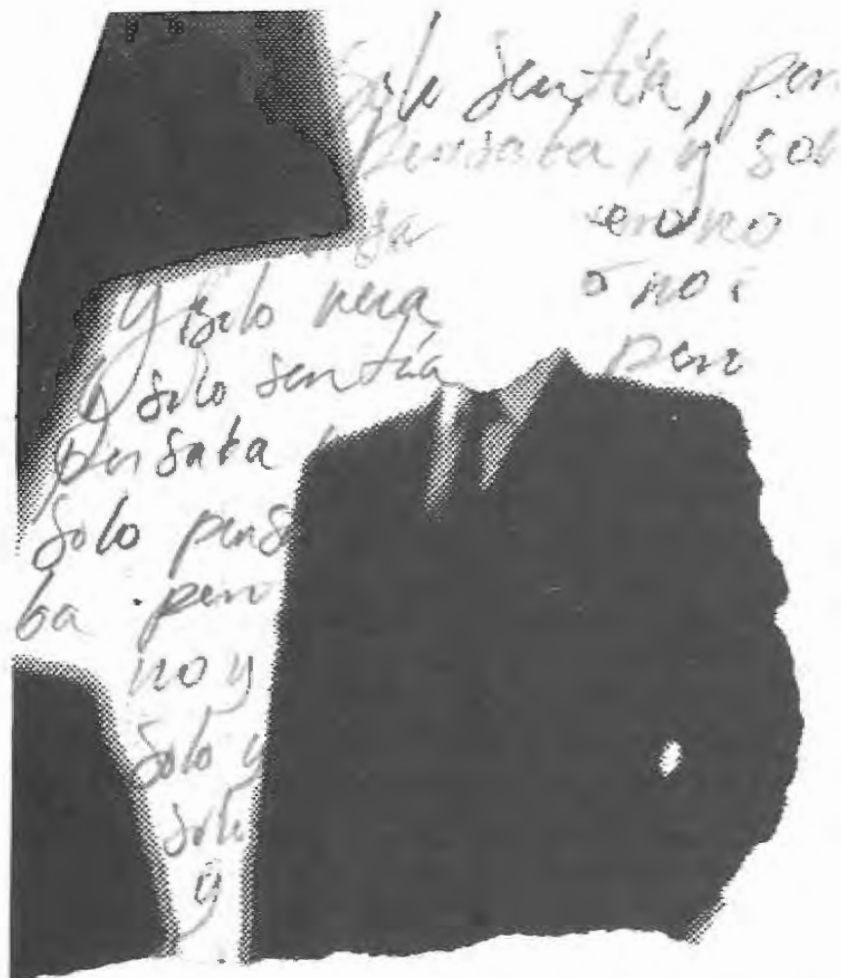 solo sentía, per
pensaba, y sol
sa
y solo veia, o no
y solo sentía pero
pensaba
solo pens
ba pero
no y
solo y
solo
y